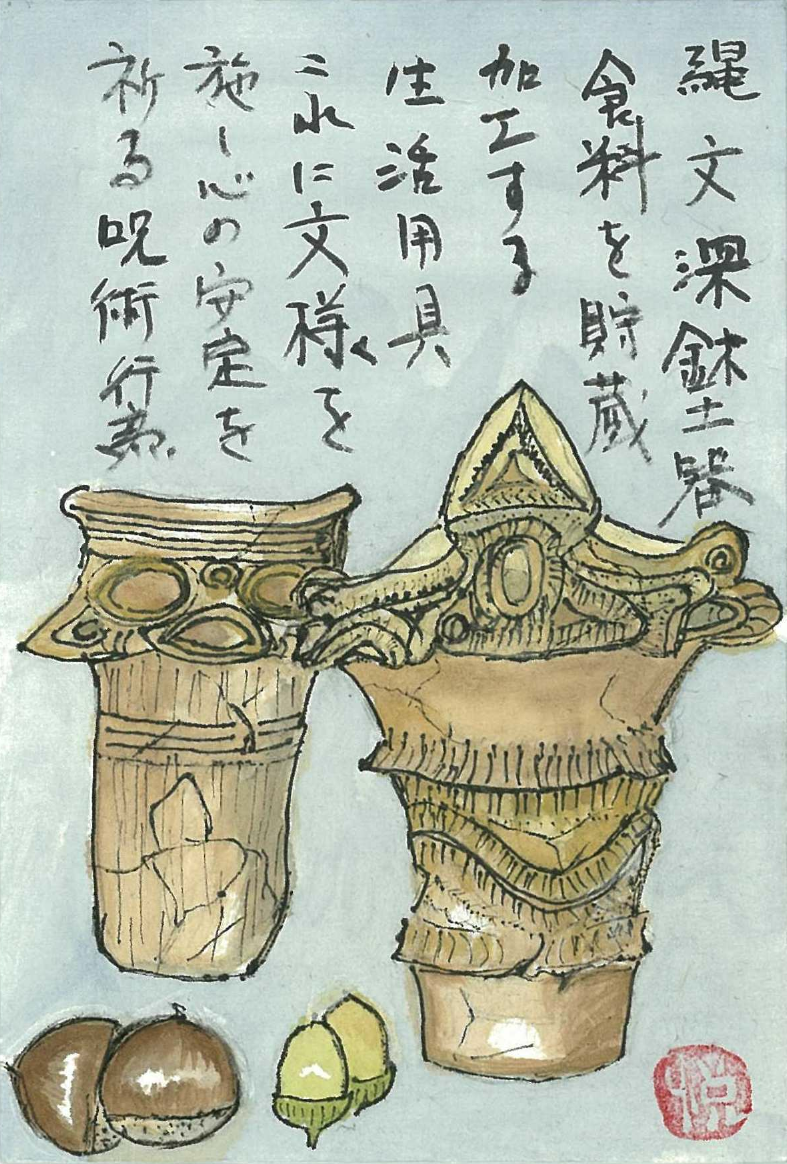 縄文深鉢土器
食料を貯蔵
加工する
生活用具
これに文様を
施し心の安定を
祈る呪術行為
悦